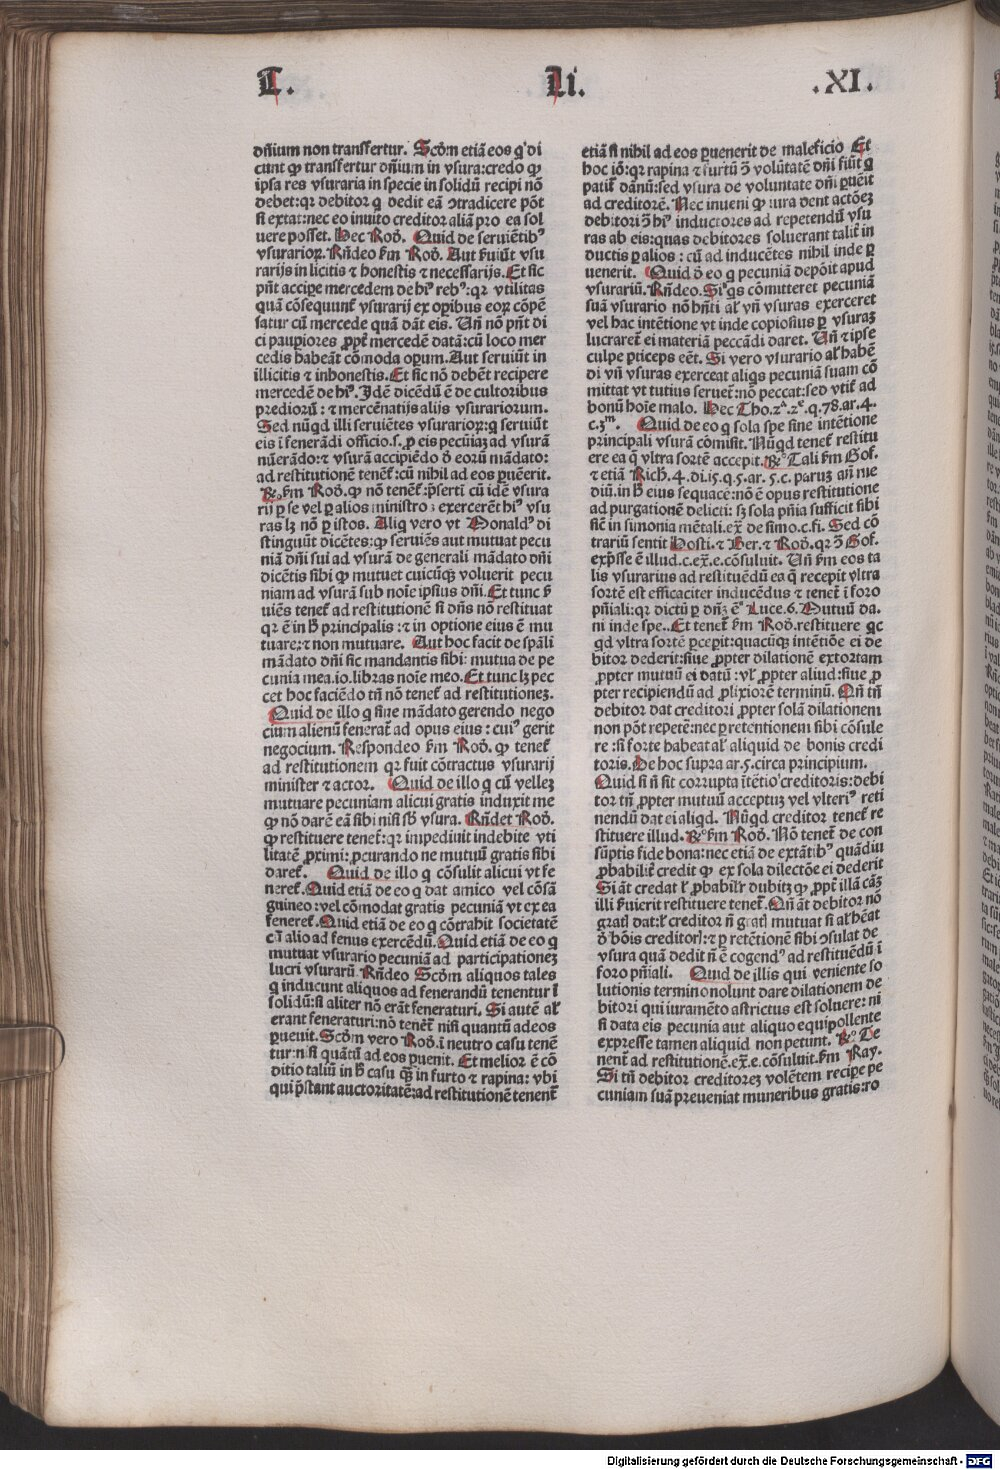 T. Li. .XI.
dñium non transfertur. Scđm etiã eos q̃ di
cunt ꝙ transfertur dñium in vsura:credo ꝙ
ipsa res vsuraria in specie in solidũ recipi nõ
debet:qꝛ debitor q̃ dedit eã ꝯtradicere põt
si extat:nec eo inuito creditor aliã pro ea sol
uere posset. Hec Rođ. Quid de seruiẽtibꝰ
vsurarioꝝ. Rñdeo ẜm Rođ. Aut ẜuiũt vsu
rarijs in licitis ⁊ honestis ⁊ necessarijs. Et sic
pñt accipe mercedem de hiꝰ rebꝰ:qꝛ vtilitas
quã cõsequunt̃ vsurarij ex oꝑibus eoꝝ cõpẽ
satur cũ mercede quã dãt eis. Uñ nõ pñt di
ci pauꝑiores ꝓpt̃ mercedẽ datã:cũ loco mer
cedis habeãt cõmoda opum. Aut seruiũt in
illicitis ⁊ inhonestis. Et sic nõ debẽt recipere
mercedẽ de hiꝰ. Idẽ dicẽdũ ẽ de cultoribus
prediorũ: ⁊ mercẽnatijs alijs vsurariorum.
Sed nũqd illi seruiẽtes vsurarioꝝ:q̃ seruiũt
eis ĩ fenerãdi officio.s. ꝓ eis pecũiaʒ ad vsurã
nũerãdo:⁊ vsurã accipiẽdo đ eorũ mãdato:
ad restitutionẽ tenẽt̃:cũ nihil ad eos ꝑuẽerit.
℞º.ẜm Rođ.ꝙ nõ tenẽt̃:p̃serti cũ idẽ vsura
rij ꝑ se vel ꝑ alios ministroꝫ exercerẽt hiꝰ vsu
ras lꝫ nõ ꝑ istos. Aliq vero vt Donaldꝰ di
stinguũt dicẽtes:ꝙ seruiẽs aut mutuat pecu
niã dñi sui ad vsurã de generali mãdato dñi
dicẽtis sibi ꝙ mutuet cuicũqꝫ voluerit pecu
niam ad vsurã sub noĩe ipsius dñi. Et tunc ẜ
uiẽs tenet̃ ad restitutionẽ si dñs nõ restituat
qꝛ ẽ in ħ principalis :⁊ in optione eius ẽ mu
tuare:⁊ non mutuare. Aut hoc facit de spãli
mãdato dñi sic mandantis sibi: mutua de pe
cunia mea.io.libras noĩe meo. Et tunc lꝫ pec
cet hoc faciẽdo tñ nõ tenet̃ ad restitutioneꝫ.
Quid de illo q̃ sine mãdato gerendo nego
cium alienũ fenerat̃ ad opus eius : cuiꝰ gerit
negocium. Respondeo ẜm Rođ. ꝙ tenet̃
ad restitutionem qꝛ fuit cõtractus vsurarij
minister ⁊ actor. Quid de illo q̃ cũ velleꝫ
mutuare pecuniam alicui gratis induxit me
ꝙ nõ darẽ eã sibi nisi sƀ vsura. Rñdet Rođ.
ꝙ restituere tenet̃:qꝛ impediuit indebite vti
litatẽ ꝓximi: ꝓcurando ne mutuũ gratis sibi
daret̃. Quid de illo q̃ cõsulit alicui vt fe
neret̃. Quid etiã de eo q̃ dat amico vel cõsã
guineo :vel cõmodat gratis pecuniã vt ex ea
feneret̃. Quid etiã de eo q̃ cõtrahit societatẽ
cũ alio ad fenus exercẽdũ. Quid etiã de eo q̃
mutuat vsurario pecuniã ad participationeꝫ
lucri vsurarũ. Rñdeo Scđm aliquos tales
q̃ inducunt aliquos ad fenerandũ tenentur ĩ
solidũ:si aliter nõ erãt feneraturi. Si autẽ al̃r
erant feneraturi:nõ tenẽt̃ nisi quantũ ad eos
ꝑuenit. Scđm vero Rođ. ĩ neutro casu tenẽ
tur:nisi quãtũ ad eos ꝑuenit. Et melior ẽ cõ
ditio taliũ in ħ casu qꝫ in furto ⁊ rapina: vbi
qui p̃stant auctoritatẽ:ad restitutionẽ tenent̃
etiã si nihil ad eos ꝑuenerit de maleficio Et
hoc iõ:qꝛ rapina ⁊ furtũ ꝯ̃ volũtatẽ dñi fiũt q̃
patit̃ dãnũ:sed vsura de voluntate dñi ꝑueĩt
ad creditorẽ. Nec inueni ꝙ iura dent actõeꝫ
debitori ꝯ̃ hiꝰ inductores ad repetendũ vsu
ras ab eis:quas debitores soluerant talit̃ in
ductis ꝑ alios : cũ ad inducẽtes nihil inde ꝑ
uenerit. Quid đ eo q̃ pecuniã depõit apud
vsurariũ. Rñdeo. Siqs cõmitteret pecuniã
suã vsurario nõ hñti al̃ vñ vsuras exerceret
vel hac intẽtione vt inde copiosius ꝑ vsuraʒ
lucraret̃ ei materiã peccãdi daret. Uñ ⁊ ipse
culpe ꝑticeps eẽt. Si vero vsurario al̃ habẽ
di vñ vsuras exerceat aliqs pecuniã suam cõ
mittat vt tutius seruet̃:nõ peccat:sed vtit̃ ad
bonũ hoĩe malo. Hec Tho.2ª.2ᵉ.q.78.ar.4.
c.3ᵐ. Quid de eo q̃ sola spe sine intẽtione
principali vsurã cõmisit. Nũqd tenet̃ restitu
ere ea q̃ vltra sortẽ accepit. ℞º Tali ẜm Gof.
⁊ etiã Rich.4.di.i5.q.5.ar. 5.c. paruꝫ añ me
diũ.in ħ eius sequacẽ:nõ ẽ opus restitutione
ad purgationẽ delicti: sꝫ sola pñia sufficit sibi
sic̃ in simonia mẽtali.ex̃ de simo.c.fi. Sed cõ
trariũ sentit Hosti.⁊ Ber.⁊ Rođ. qꝛ ꝯ̃ Gof.
exp̃sse ẽ illud.c.ex̃.e.cõsuluit. Uñ ẜm eos ta
lis vsurarius ad restituẽdũ ea q̃ recepit vltra
sortẽ est efficaciter inducẽdus ⁊ tenet̃ ĩ foro
pñiali:qꝛ dictũ ꝑ dñꝫ ẽ Luce.6. Mutuũ da.
ni inde spe.. Et tenet̃ ẜm Rođ.restituere qc
qd vltra sortẽ ꝑcepit:quacũqꝫ intẽtiõe ei de
bitor dederit:siue ꝓpter dilationẽ extortam
ꝓpter mutuũ ei datũ :vl̃ ꝓpter aliud:siue ꝓ
pter recipiendũ ad ꝓlixiorẽ terminũ. Qñ tñ
debitor dat creditori ꝓpter solã dilationem
non põt repetẽ:nec ꝑ retentionem sibi cõsule
re :si forte habeat al̃ aliquid de bonis credi
toris. De hoc supra ar.5.circa principium.
Quid si ñ sit corrupta ĩtẽtioꝰcreditoris:debi
tor tñ ꝓpter mutuũ acceptuꝫ vel vlteriꝰ reti
nendũ dat ei aliqd. Nũqd creditor tenet̃ re
stituere illud. ℞º ẜm Rođ. Nõ tenet̃ de con
sũptis fide bona:nec etiã de extãtibꝰ quãdiu
ꝓbabilit̃ credit ꝙ ex sola dilectõe ei dederit
Si ãt credat l̃ ꝓbabilr̃ dubitꝫ ꝙ ꝓpt̃ illã cãʒ
illi ẜuierit restituere tenet̃. Qñ ãt debitor nõ
gratĩ dat:l̃ creditor ñ gratĩ mutuat si al̃ hẽat
đ bõis creditorĩ:⁊ ꝑ retẽtionẽ sibi ꝯsulat de
vsura quã dedit ñ ẽ cogendꝰ ad restituẽdũ ĩ
foro pñiali. Quid de illis qui veniente so
lutionis termino nolunt dare dilationem de
bitori qui iuramẽto astrictus est soluere: ni
si data eis pecunia aut aliquo equipollente
expresse tamen aliquid non petunt. ℞º Te
nent̃ ad restitutionẽ.ex̃.e.cõsuluit.ẜm Ray.
Si tñ debitor creditoreꝫ volẽtem recipe pe
cuniam suã preueniat muneribus gratis:ro
Digitalisierung gefördert durch die Deutsche Forschungsgemeinschaft - DFG